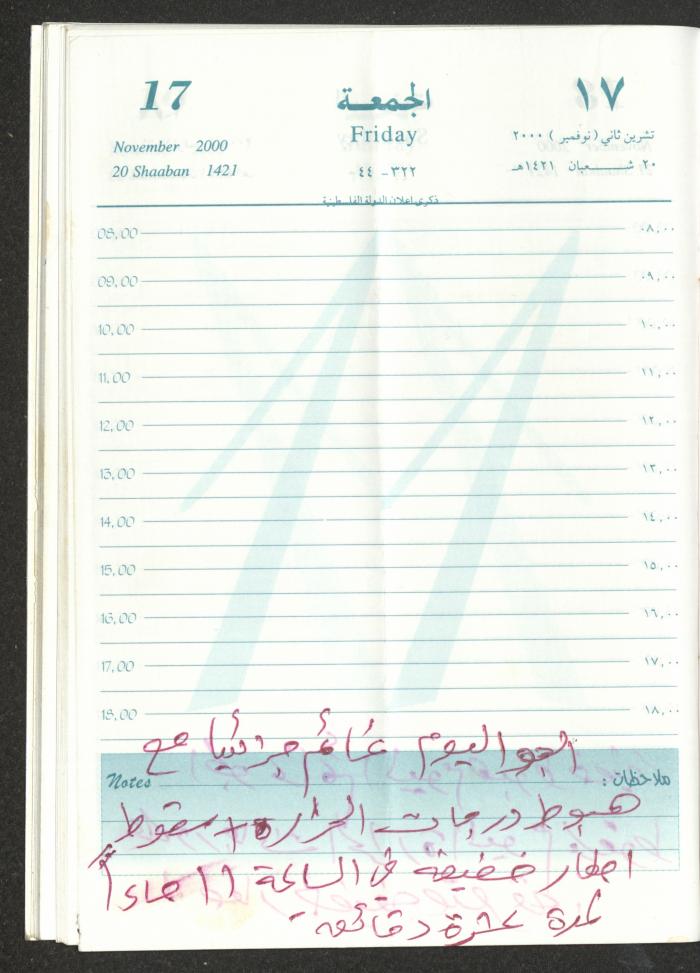 17 الجمعة ١٧
November 2000 Friday تشرين ثاني (نوفمبر) ٢٠٠٠
20 Shaaban 1421 ٣٢٢ - ٤٤ ٢٠ شعبان ١٤٢١هـ
ذكرى اعلان الدولة الفلسطينية
08,00 ٠٨,٠٠
09,00 ٠٩,٠٠
10,00 ١٠,٠٠
11,00 ١١,٠٠
12,00 ١٢,٠٠
13,00 ١٣,٠٠
14,00 ١٤,٠٠
15,00 ١٥,٠٠
16,00 ١٦,٠٠
17,00 ١٧,٠٠
18,00 ١٨,٠٠
الجو اليوم غائم جزئيا مع
Notes ملاحظات :
هبوط درجات الحرارة + سقوط
امطار خفيفة في الساعة ١١ مساءاً
لمدة عشرة دقائق